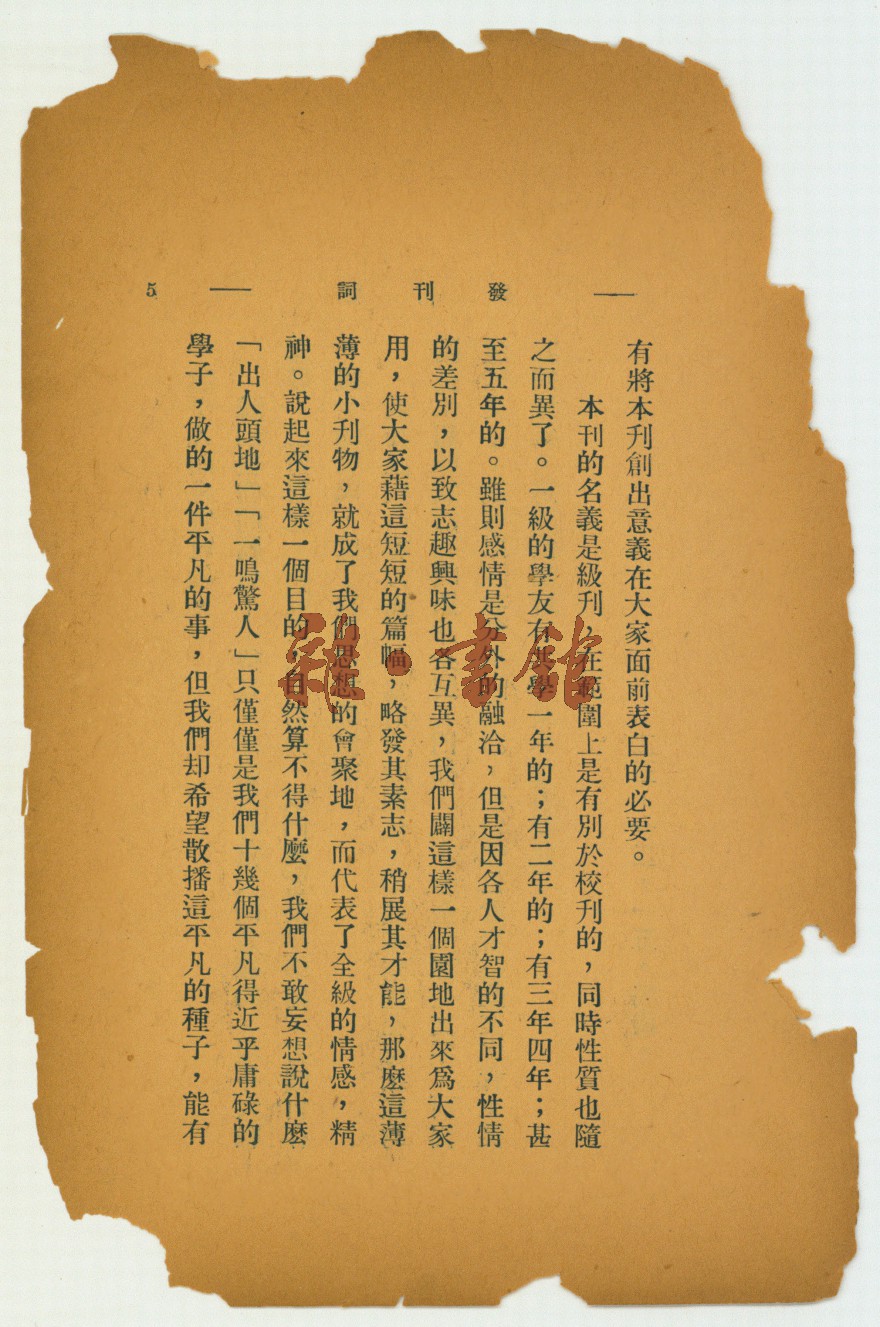 — 發刊詞 — 5
有將本刋創出意義在大家面前表白的必要。
本刋的名義是級刋，在範圍上是有別於校刋的，同時性質也隨
之而異了。一級的學友有共學一年的；有二年的；有三年四年；甚
至五年的。雖則感情是分外的融洽，但是因各人才智的不同，性情
的差別，以致志趣興味也各互異，我們闢這樣一個園地出來爲大家
用，使大家藉這短短的篇幅，略發其素志，稍展其才能，那麽這薄
薄的小刋物，就成了我們思想的會聚地，而代表了全級的情感，精
神。說起來這樣一個目的，自然算不得什麽，我們不敢妄想說什麽
「出人頭地」「一鳴驚人」只僅僅是我們十幾個平凡得近乎庸碌的
學子，做的一件平凡的事，但我們却希望散播這平凡的種子，能有
雜·書館